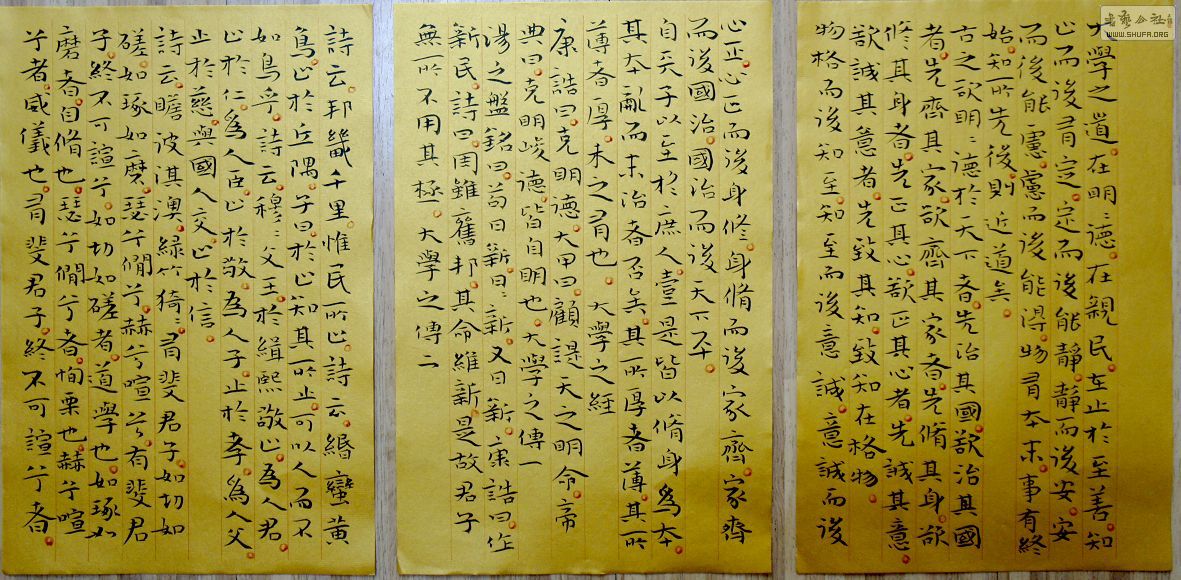 大學之道在明〻德在親民在止於至善知
止而後有定定而後能靜靜而後安安
而後能慮慮而後能得物有本末事有終
始知所先後則近道矣
古之欲明〻德於天下者先治其國欲治其國
者先齊其家欲齊其家者先脩其身欲
修其身者先正其心欲正其心者先誠其意
欲誠其意者先致其知致知在格物
物格而後知至知至而後意誠意誠而後
心正心正而後身修身脩而後家齊家齊
而後國治國治而後天下平
自天子以至於庶人壹是皆以脩身為本
其本亂而末治者否矣其所厚者薄其所
薄者厚未之有也 大學之經
康誥曰克明德大甲曰顧諟天之明命帝
典曰克明峻德皆自明也大學之傳一
湯之盤銘曰苟日新日〻新又日新康誥曰作
新民詩曰周雖舊邦其命維新是故君子
無所不用其極大學之傳二
詩云邦畿千里惟民所止詩云緡蠻黃
鳥止於丘隅子曰於止知其所止可以人而不
如鳥乎詩云穆〻文王於緝熙敬止為人君
止於仁為人臣止於敬為人子止於孝為人父
止於慈與國人交止於信
詩云瞻彼淇澳綠竹猗〻有斐君子如切如
磋如琢如磨瑟兮僩兮赫兮喧兮有斐君
子終不可諠兮如切如磋者道學也如琢如
磨者自脩也瑟兮僩兮者恂栗也赫兮喧
兮者威儀也有斐君子終不可諠兮者
书艺公社
WWW.SHUFA.ORG